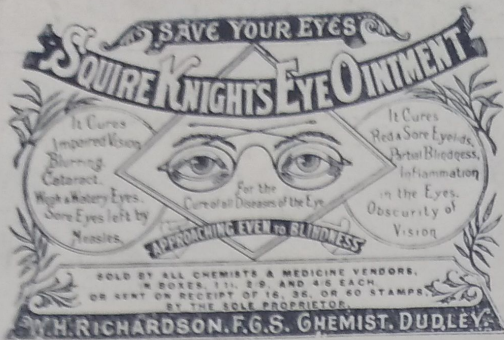 SAVE YOUR EYES
SQUIRE KNIGHT'S EYE OINTMENT
It Cures
Impaired Vision
Blurring,
Cataract,
Weak & Watery Eyes.
Sore Eyes left by
Measles.
For the
Cure of all Diseases of the Eye
APPROACHING EVEN TO BLINDNESS
It Cures
Red & Sore Eyelids,
Partial Blindness,
Inflammation
in the Eyes.
Obscurity of
Vision
SOLD BY ALL CHEMISTS & MEDICINE VENDORS,
IN BOXES, 1/1½, 2/9, AND 4/6 EACH,
OR SENT ON RECEIPT OF 16, 36, OR 60 STAMPS,
BY THE SOLE PROPRIETOR,
W.H. RICHARDSON, F.G.S. CHEMIST, DUDLEY.